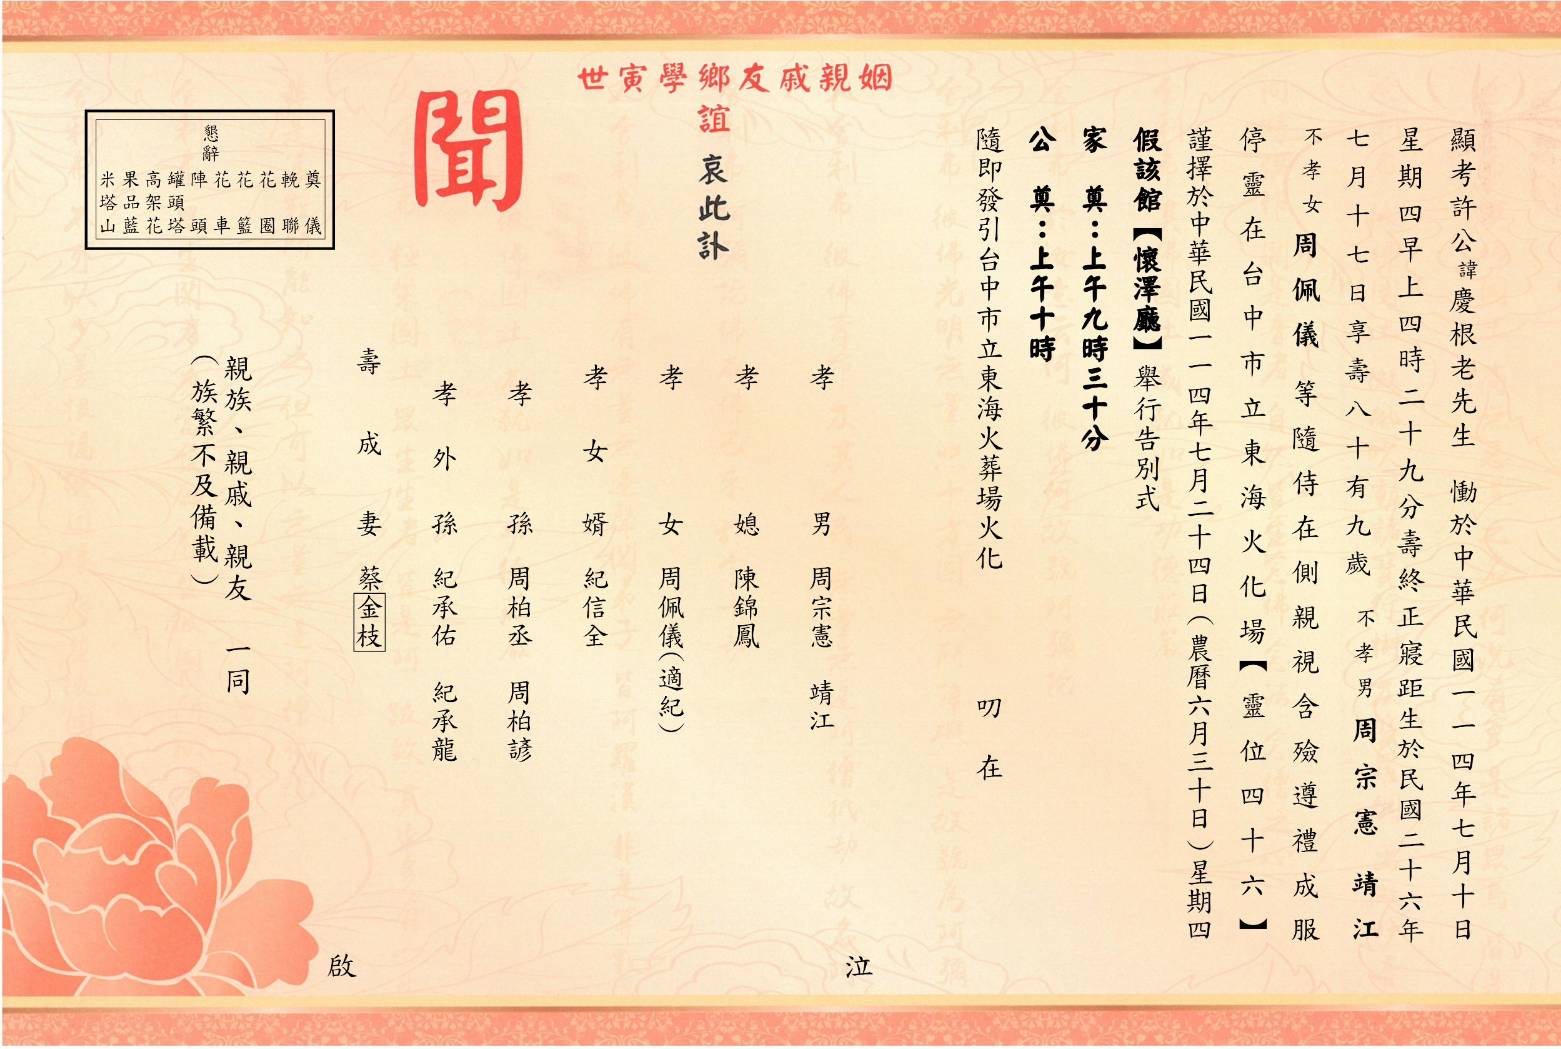 顯考許公諱慶根老先生 慟於中華民國一一四年七月十日
星期四早上四時二十九分壽終正寢距生於民國二十六年
七月十七日享壽八十有九歲 不孝男 周宗憲 靖江
不孝女 周佩儀 等隨侍在側親視含殮遵禮成服
停靈在台中市立東海火化場【靈位四十六】
謹擇於中華民國一一四年七月二十四日(農曆六月三十日)星期四
假該館【懷澤廳】舉行告別式
家 奠：上午九時三十分
公 奠：上午十時
隨即發引台中市立東海火葬場火化 叨在
姻親戚友鄉學寅世
誼 哀此訃
聞
孝男 周宗憲 靖江
孝媳 陳錦鳳
孝女 周佩儀(適紀)
孝女婿 紀信全
孝孫 周柏丞 周柏諺
孝外孫 紀承佑 紀承龍
壽成妻 蔡金枝
泣
親族、親戚、親友 一同
(族繁不及備載)
啟
懇辭
奠儀
輓聯
花圈
花籃
花車
陣頭
罐頭塔
高架花
果品藍
米塔山